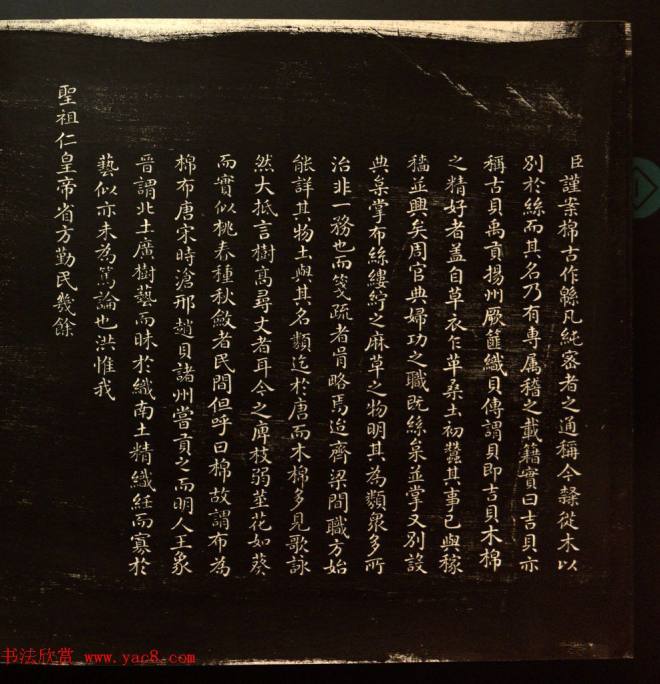 臣謹案棉古作緜凡純密者之通稱今隸從木以
別於絲而其名乃有專属稽之載籍實曰吉貝亦
稱古貝禹貢揚州厥篚織貝傳謂貝即吉貝木棉
之精好者蓋自草衣乍革桑土初蠶其事已與稼
穡並興矣周官典婦功之職既絲枲並掌又別設
典枲掌布絲縷紵之麻草之物明其為類衆多所
治非一務也而箋疏者肎略焉迨齊梁間職方始
能詳其物土與其名類迄於唐而木棉多見歌詠
然大抵言樹高尋丈者耳今之庳枝弱莖花如葵
而實似桃春種秋斂者民間但呼曰棉故謂布為
棉布唐宋時滄邢趙貝諸州嘗貢之而明人王象
晉謂北土廣樹藝而昧於織南土精織絍而寡於
藝似亦未為篤論也洪惟我
聖祖仁皇帝省方勤民幾餘
书法欣赏 www.yac8.com